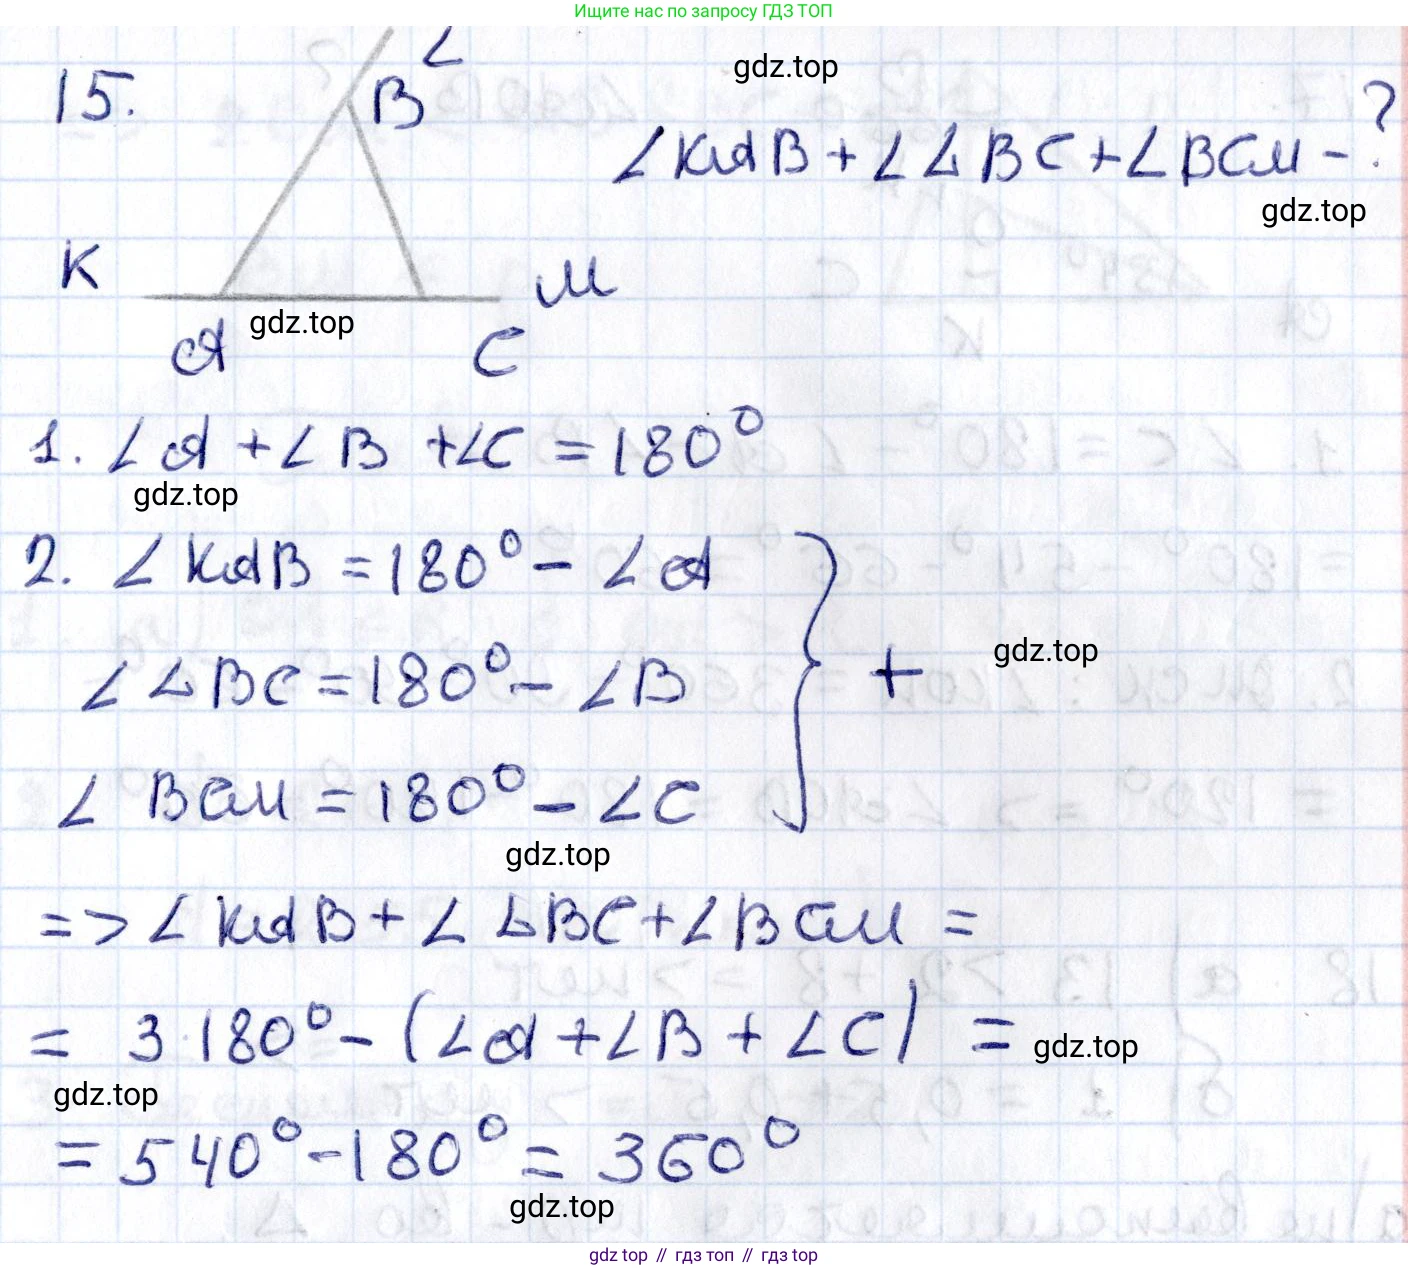 Ищите нас по запросу ГДЗ ТОП
15.
L
B
gdz.top
∠KAB + ∠LBC + ∠BCM - ?
gdz.top
K
M
A
gdz.top
C
1. ∠A + ∠B + ∠C = 180°
gdz.top
2. ∠KAB = 180° - ∠A
∠LBC = 180° - ∠B
} +
gdz.top
∠BCM = 180° - ∠C
gdz.top
=> ∠KAB + ∠LBC + ∠BCM =
= 3·180° - (∠A + ∠B + ∠C) =
gdz.top
gdz.top
= 540° - 180° = 360°
gdz.top
gdz top // гдз топ // гдз top